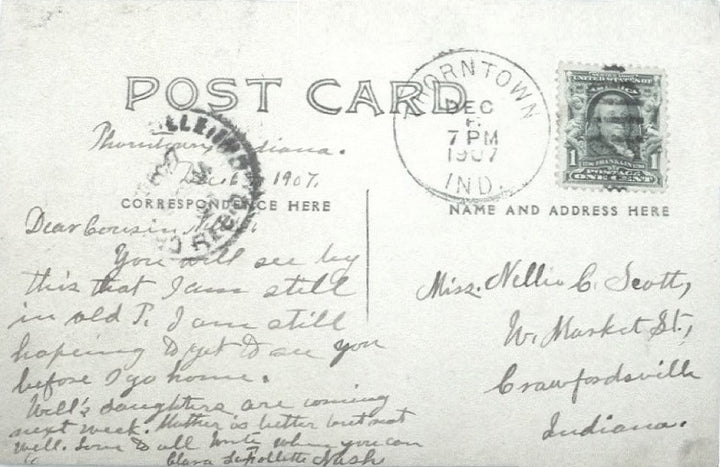 POST CARD
THORNTOWN
DEC
6
7 PM
1907
IND.
UNITED STATES OF
AMERICA
1
FRANKLIN
1
POSTAGE
ONE CENT
Thorntown, Indiana.
Dec. 6, 1907.
CORRESPONDENCE HERE
NAME AND ADDRESS HERE
Dear Cousin
You will see by
this that I am still
in old T. I am still
hoping to get to see you
before I go home.
Will's daughters are coming
next week. Mother is better but not
well. Love to all Write when you can
Clara LaFollette Nush
Miss. Nellie C. Scott,
W. Market St.,
Crawfordsville
Indiana.